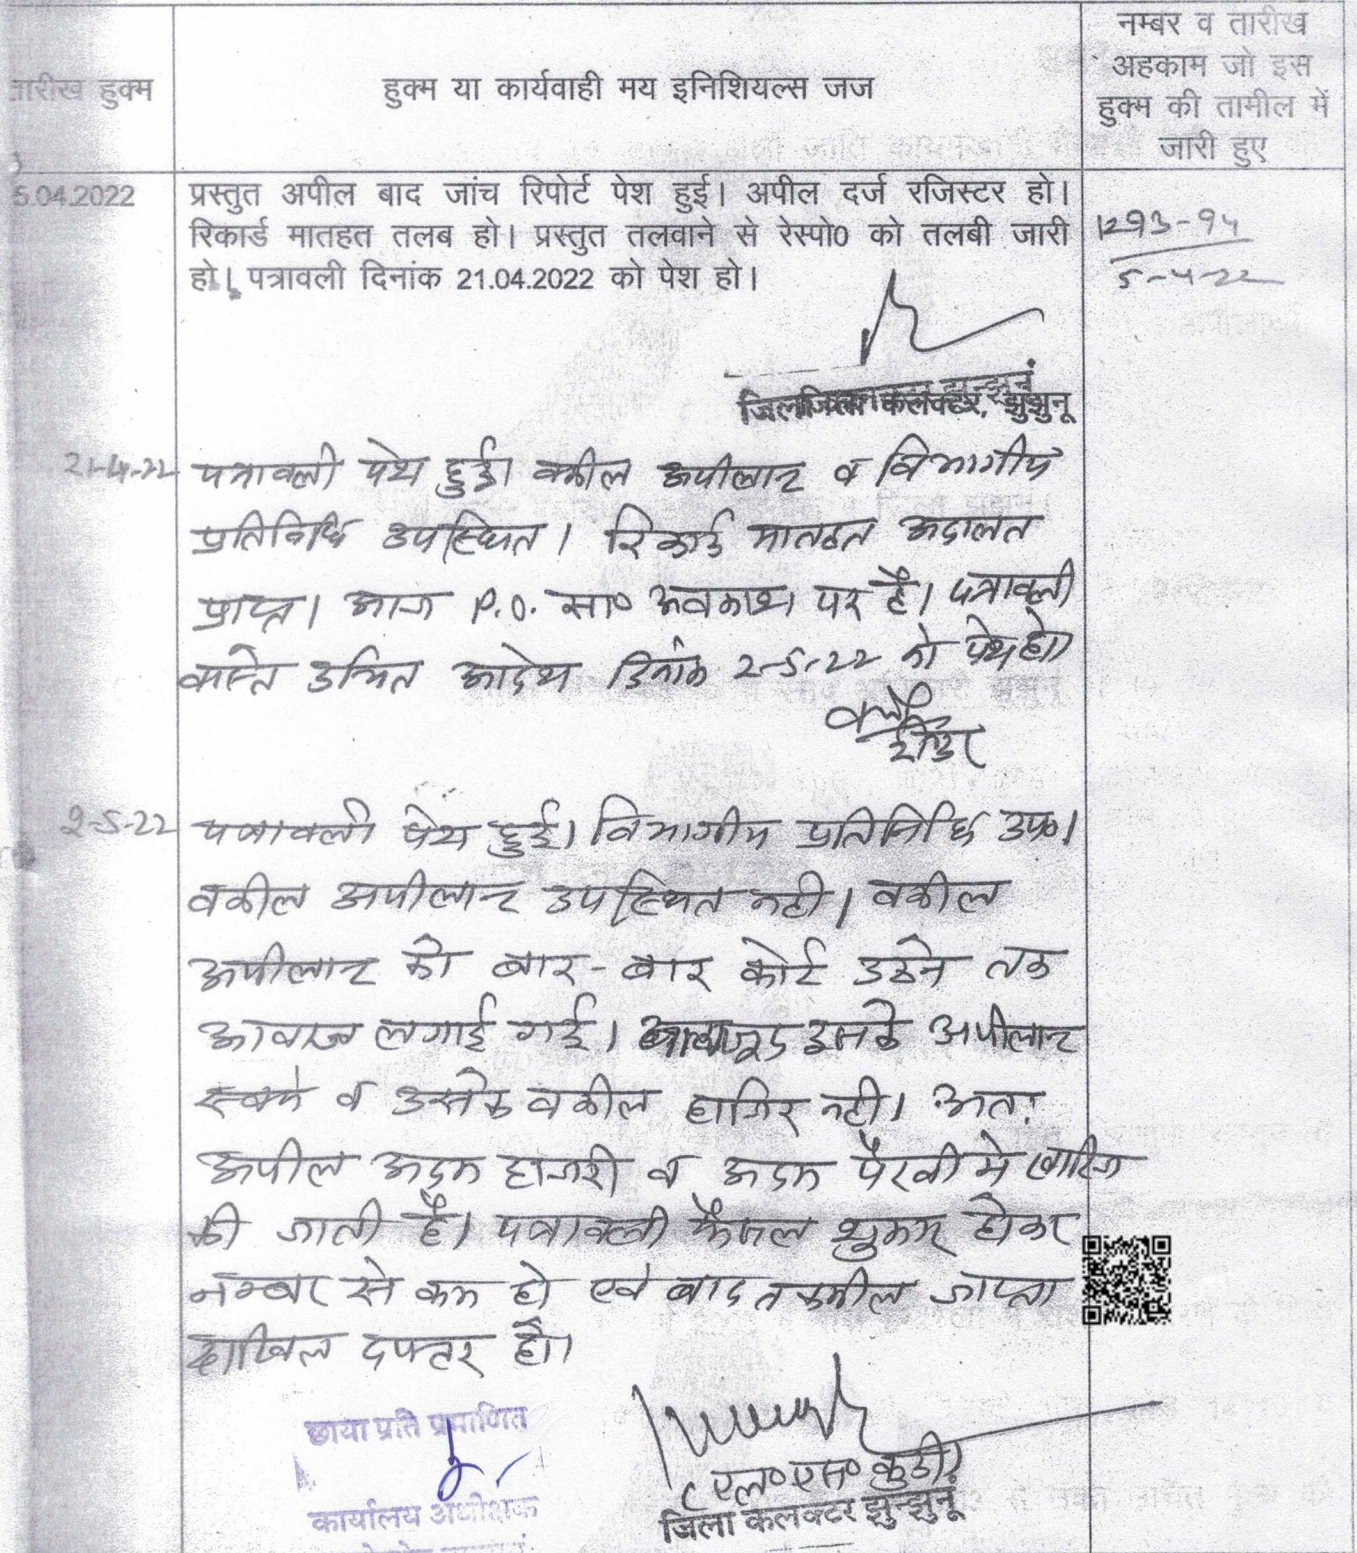 तारीख हुक्म
हुक्म या कार्यवाही मय इनिशियल्स जज
नम्बर व तारीख
अहकाम जो इस
हुक्म की तामील में
जारी हुए
5.04.2022
प्रस्तुत अपील बाद जांच रिपोर्ट पेश हुई। अपील दर्ज रजिस्टर हो।
रिकार्ड मातहत तलब हो। प्रस्तुत तलवाने से रेस्पो0 को तलबी जारी
हो। पत्रावली दिनांक 21.04.2022 को पेश हो।
1293-94
5-4-22
जिला कलक्टर, झुझुनू
21-4-22
पत्रावली पेश हुई। वकील अपीलान्ट व विभागीय
प्रतिनिधि उपस्थित। रिकार्ड मातहत अदालत
प्राप्त। आज P.O. सा० अवकाश पर है। पत्रावली
वास्ते उचित आदेश दिनांक 2-5-22 को पेश हो।
रीडर
2-5-22
पत्रावली पेश हुई। विभागीय प्रतिनिधि उप०।
वकील अपीलान्ट उपस्थित नही। वकील
अपीलान्ट को बार-बार कोर्ट उठने तक
आवाज लगाई गई। बावजूद इसके अपीलान्ट
स्वयं व उसके वकील हाजिर नही। अत:
अपील अदम हाजरी व अदम पैरवी मे खारिज
की जाती है। पत्रावली फैसल शुमार होकर
नम्बर से कम हो एवं बाद तकमील जाप्ता
दाखिल दफ्तर हो।
छाया प्रति प्रमाणित
कार्यालय अधीक्षक
(एल०एस० कुडी)
जिला कलक्टर झुन्झुनूं